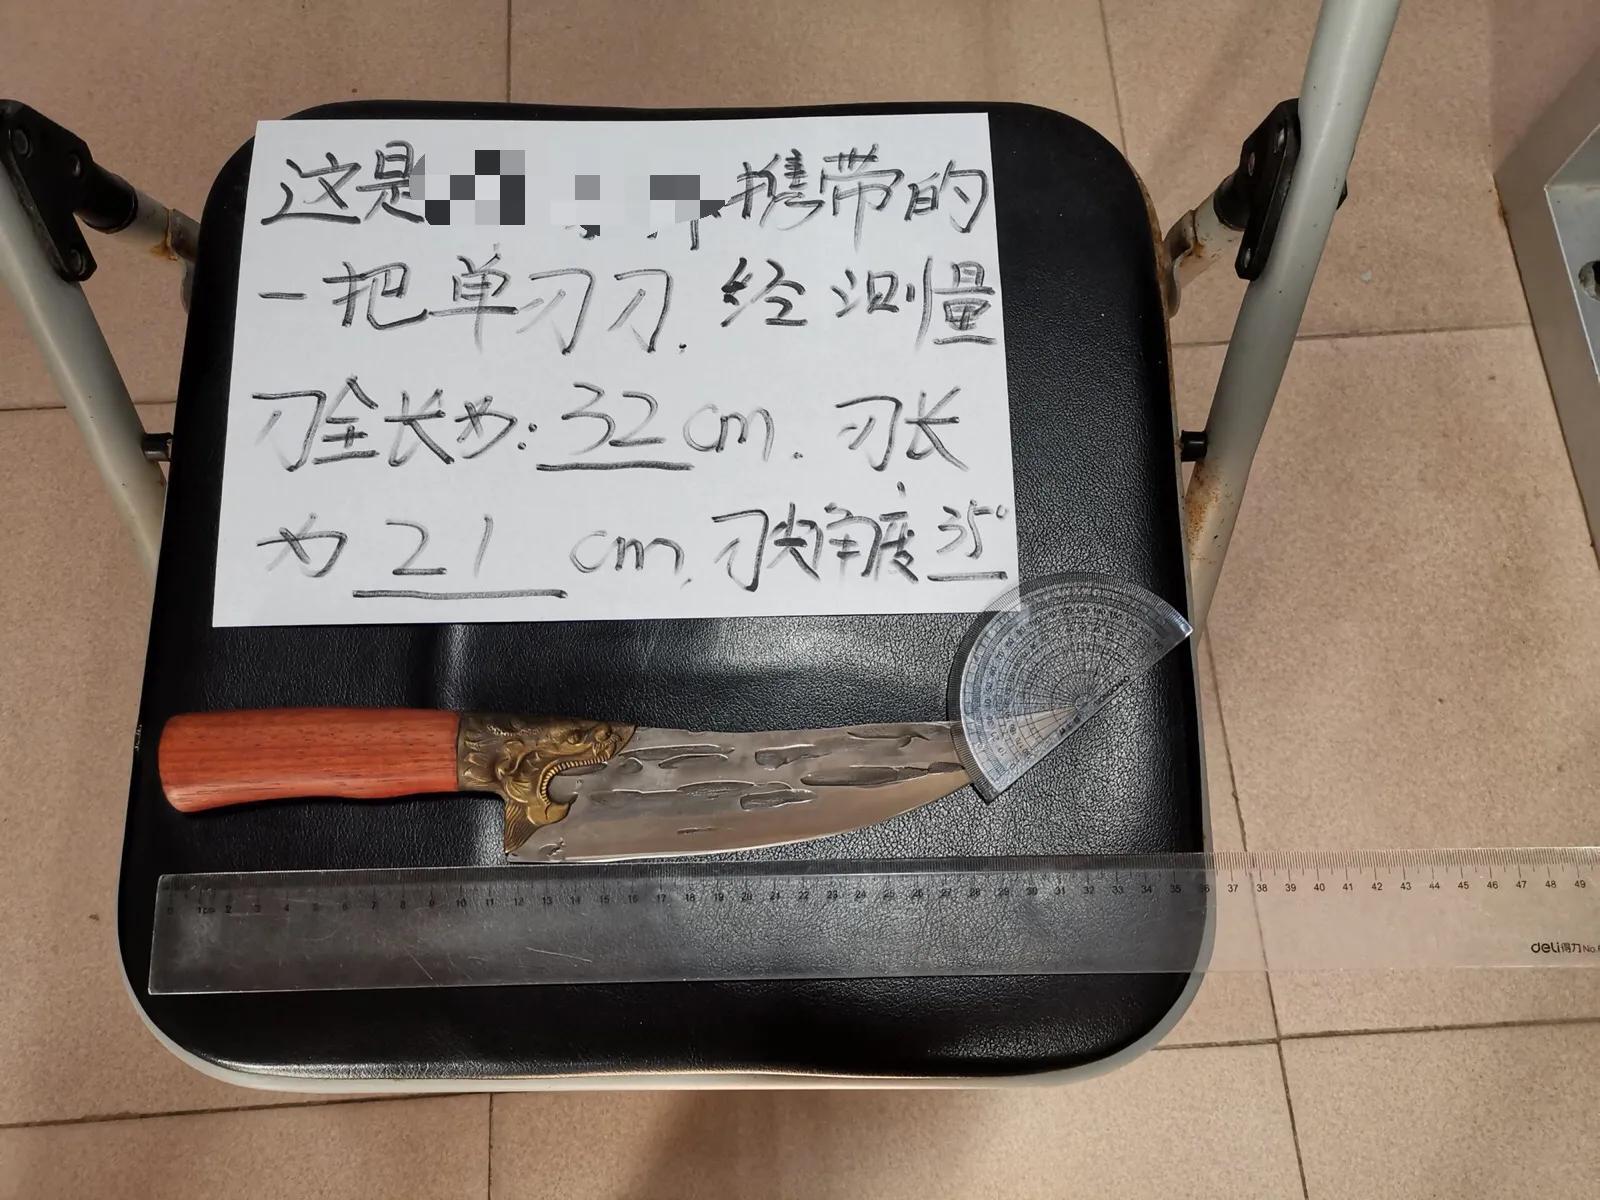 这是 携带的
一把单刃刀.经测量
刀全长为:32cm.刃长
为21cm,刀尖角度35°
0 1cm 2 3 4 5 6 7 8 9 10 11 12 13 14 15 16 17 18 19 20 21 22 23 24 25 26 27 28 29 30 31 32 33 34 35 36 37 38 39 40 41 42 43 44 45 46 47 48 49
deli得力 No.6